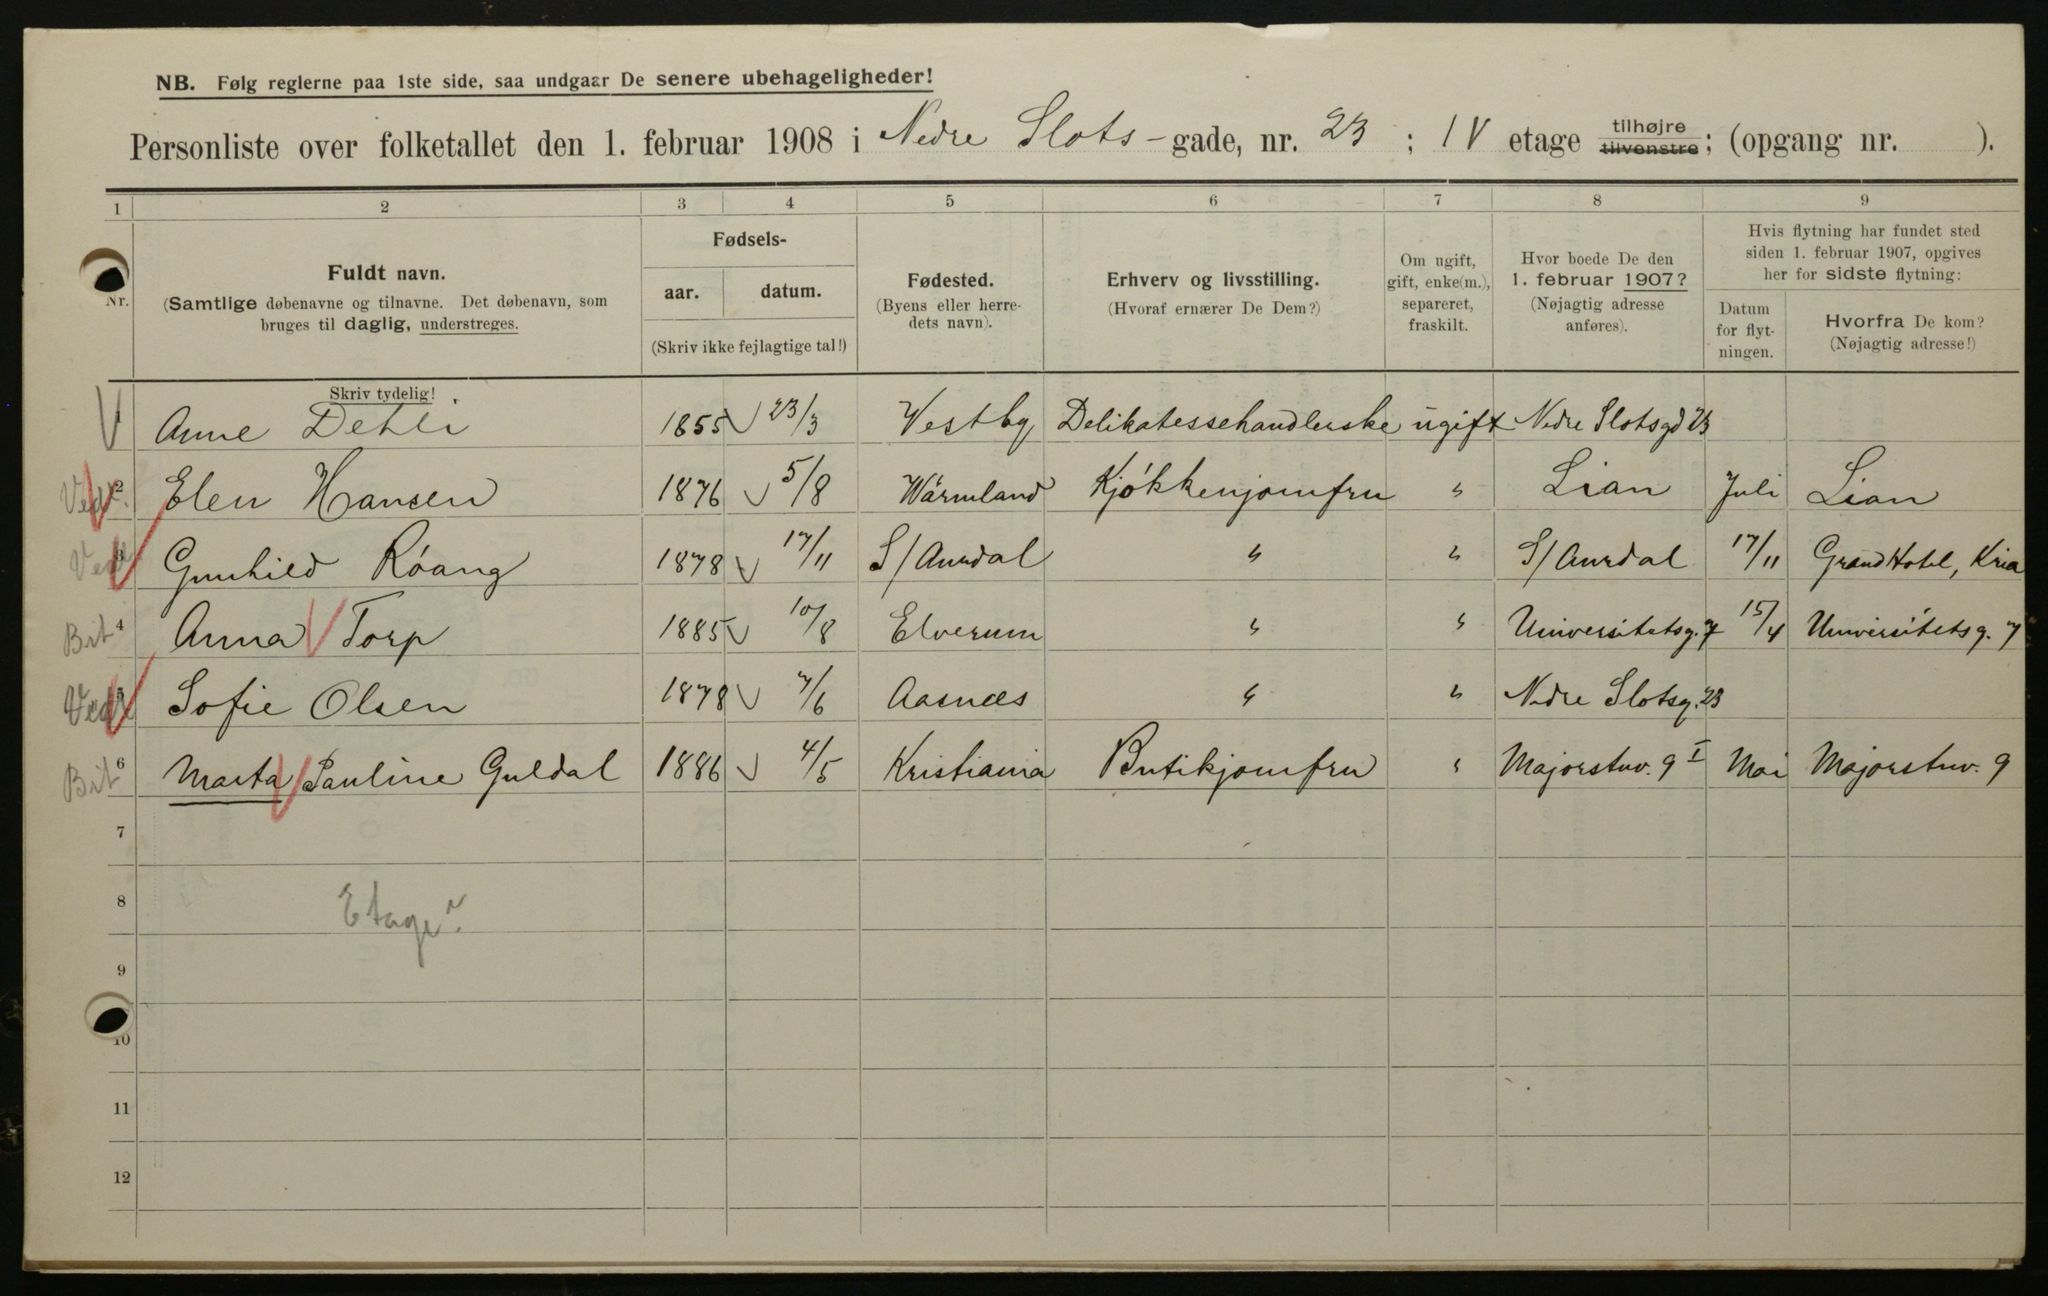 NB. Følg reglerne paa 1ste side, saa undgaar De senere ubehageligheder!
Personliste over folketallet den 1. februar 1908 i Nedre Slots-gade, nr. 23; IV etage tilhøjre tilvenstre; (opgang nr. ).
1 2 3 4 5 6 7 8 9
Nr.
Fuldt navn.
(Samtlige døbenavne og tilnavne. Det døbenavn, som
bruges til daglig, understreges.
Fødsels-
aar. datum.
(Skriv ikke fejlagtige tal!)
Fødested.
(Byens eller herre-
dets navn).
Erhverv og livsstilling.
(Hvoraf ernærer De Dem?)
Om ugift,
gift, enke(m.),
separeret,
fraskilt.
Hvor boede De den
1. februar 1907?
(Nøjagtig adresse
anføres).
Hvis flytning har fundet sted
siden 1. februar 1907, opgives
her for sidste flytning:
Datum
for flyt-
ningen.
Hvorfra De kom?
(Nøjagtig adresse!)
Skriv tydelig!
1 Anne Dehli 1855 23/3 Vestby Delikatessehandlerske ugift Nedre Slotsgd 23
Vedr. 2 Elen Hansen 1876 5/8 Wärmland Kjøkkenjomfru " Lian Juli Lian
3 Gunhild Röang 1878 17/11 S/Aurdal " " S/Aurdal 17/11 Grand Hotel, Kria
Bit 4 Anna Torp 1885 10/8 Elverum " " Universitetsg. 7 15/4 Universitetsg. 7
Vedr 5 Sofie Olsen 1878 7/6 Aasnæs " " Nedre Slotsg. 23
Bit 6 Marta Pauline Guldal 1886 4/5 Kristiania Butikjomfru " Majorstuv. 9 I Mai Majorstuv. 9
7
8
Etage?
9
10
11
12